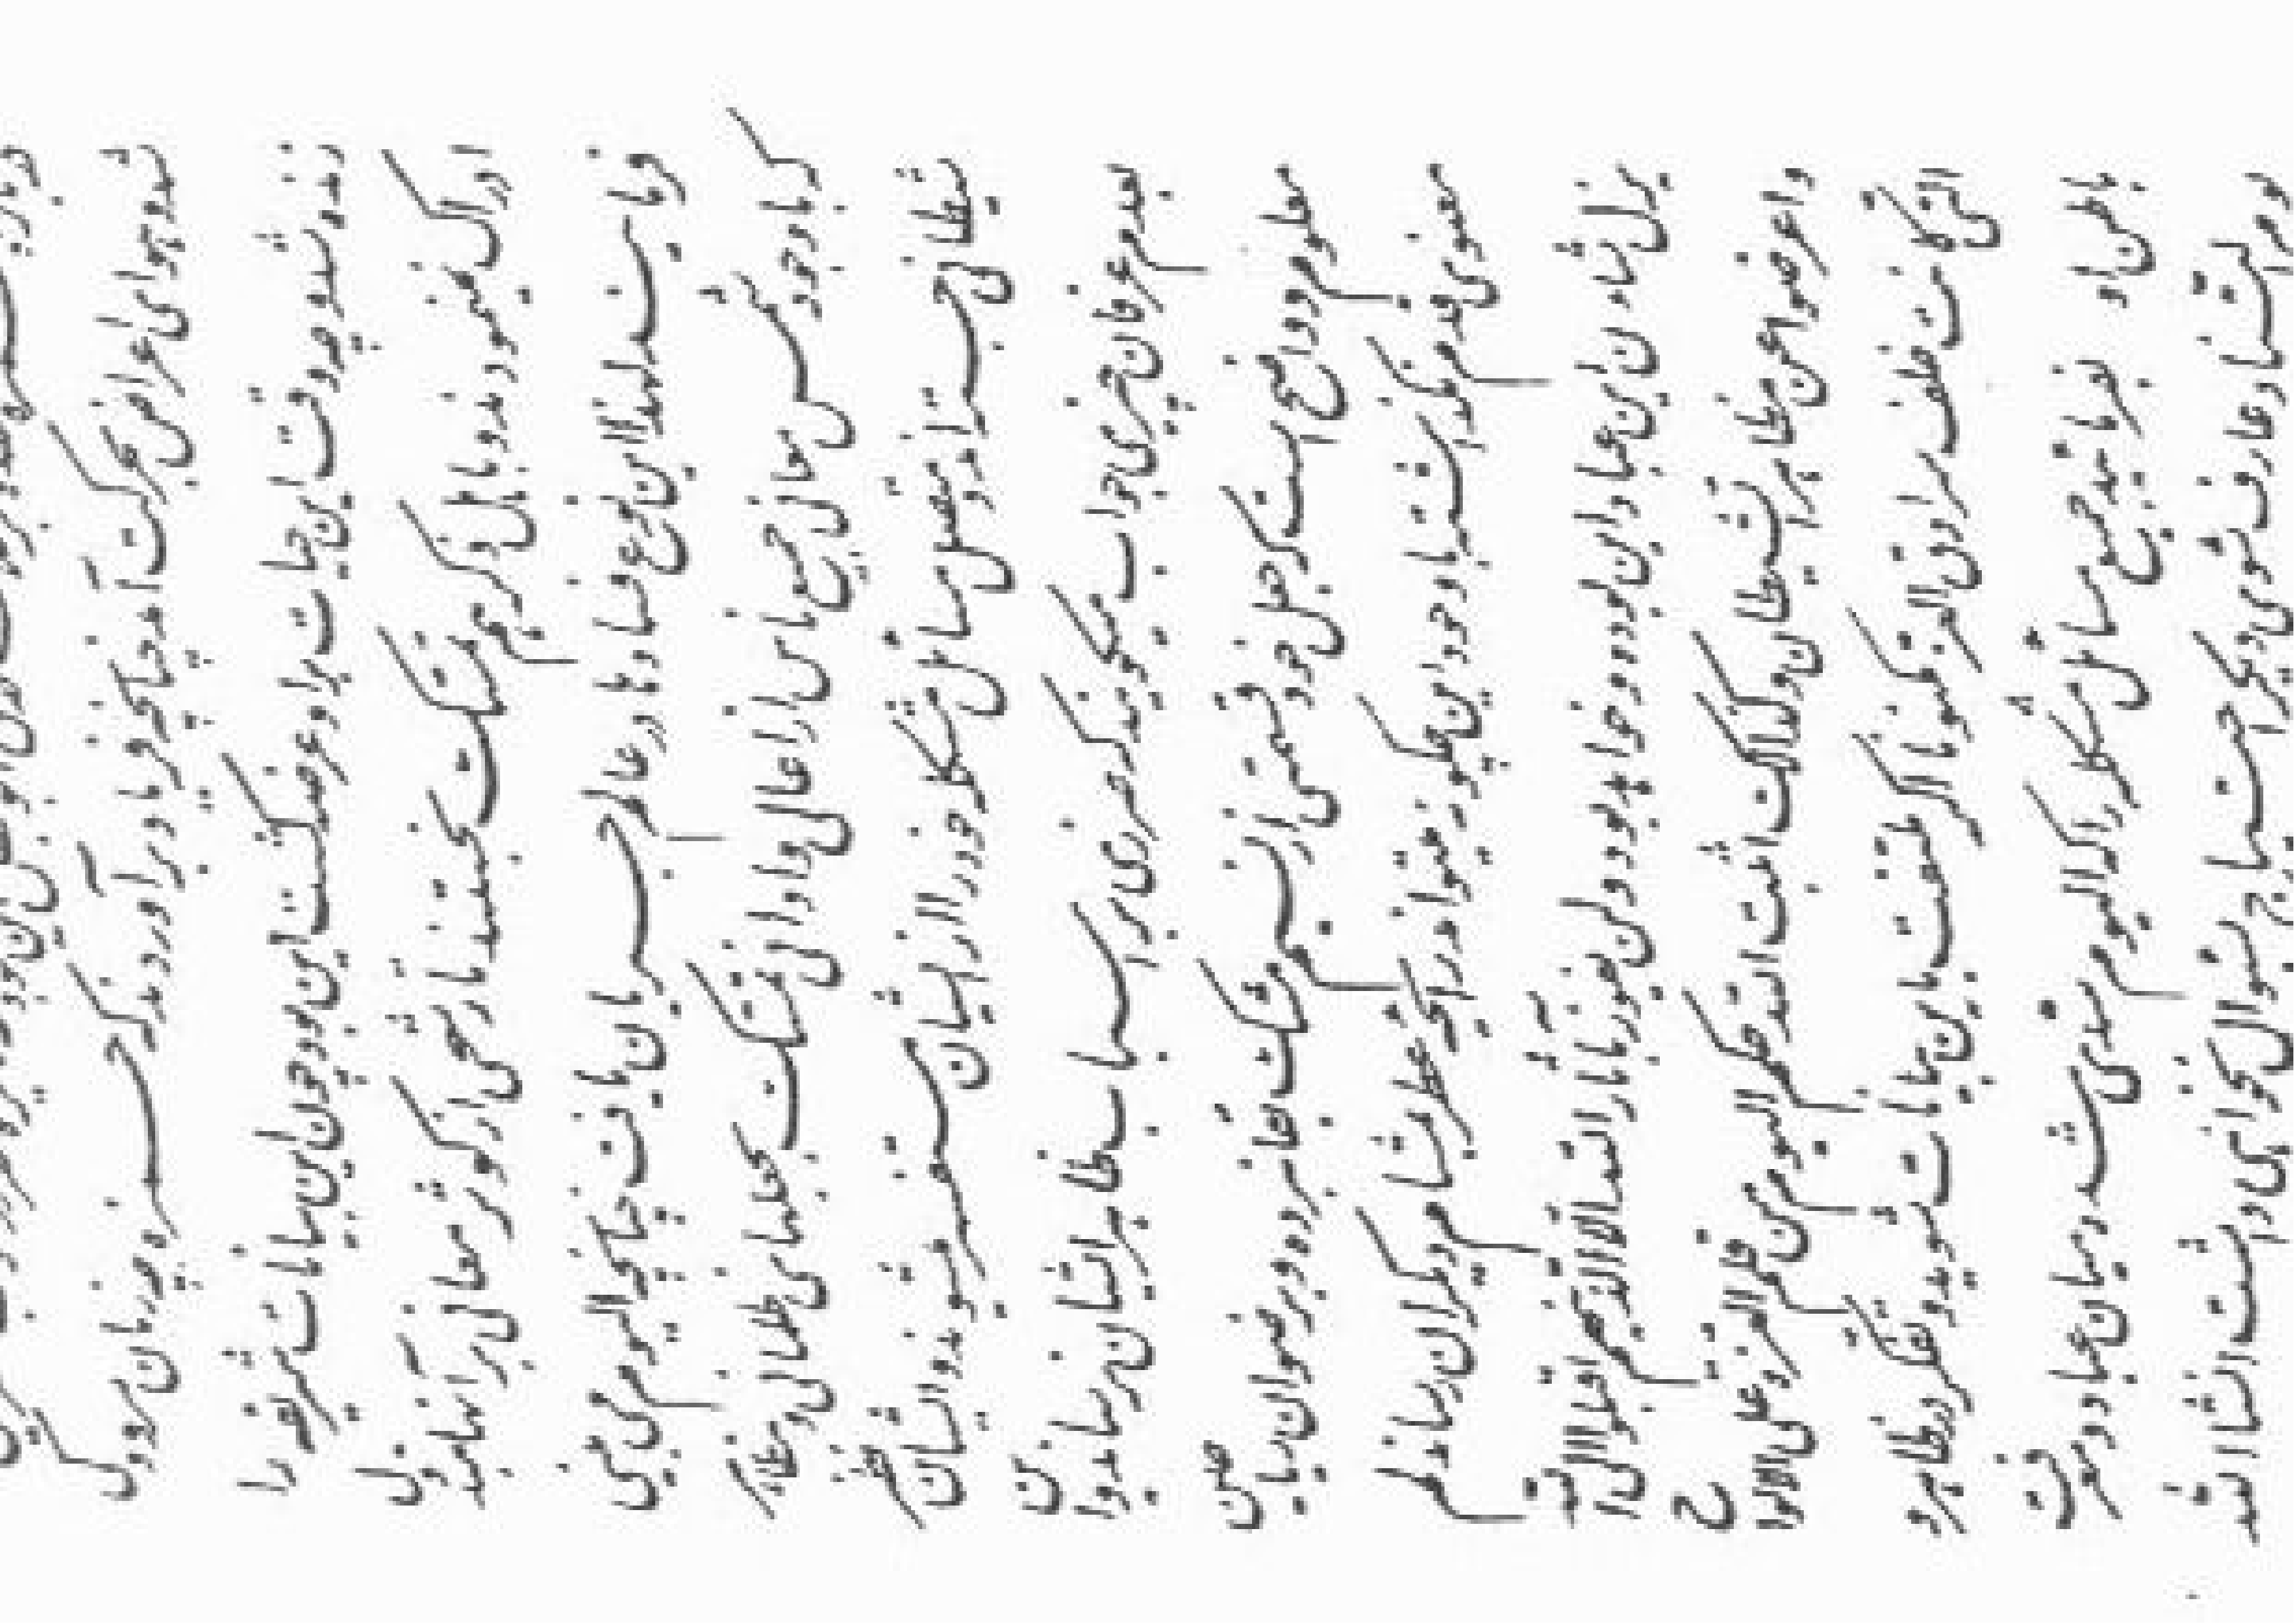 شد و هوای اعراض بحرکت آمد چنانچه فریاد برآوردند که حمزه چه زمان مرد و کی
زنده شد و چه وقت این حیات بر او عرضه گشت این بود چون این بیانات شریفه را
ادراک ننمودند و باهل ذکر هم تمسک نجستند تا رشحی از کوثر معانی بر ایشان مبذول
فرمایند لهذا این نوع فسادها در عالم جریان یافت چنانچه الیوم می بینی
که با وجود شمس معانی جمیع ناس از اعالی و ادانی تمسک بجعلهای ظلمانی و مظاهر
شیطانی جسته اند و متصل مسائل مشکله خود را از ایشان مستفسر میشوند و ایشان نظر
بعدم عرفان چیزی جواب میگویند که ضرری بر اسباب ظاهر ایشان نرساند و این
معلوم و واضح است که جعل خود قسمتی از نسیم مشک بقا نبرده و برضوان ریاحین
معنوی قدم نگذاشته با وجود این چگونه میتواند رایحه عطر بمشام دیگران رساند لم
یزل شان این عباد این بوده و خواهد بود و لن یفوز باثار الله الا الذینهم اقبلوا الیه
واعرضوا عن مظاهر الشیطان و کذلک اثبت الله حکم الیوم من قلم العز علی اللوح
التی کانت خلف سرادق العز مکنونا اگر ملتفت باین بیانات شوید و تفکر در ظاهر و
باطن او بفرمائید جمیع مسائل مشکله را که الیوم سدی شده میان عباد و معرفت
یوم التناد عارف شوی دیگر احتیاج بسئوال نخواهی داشت انشاءالله